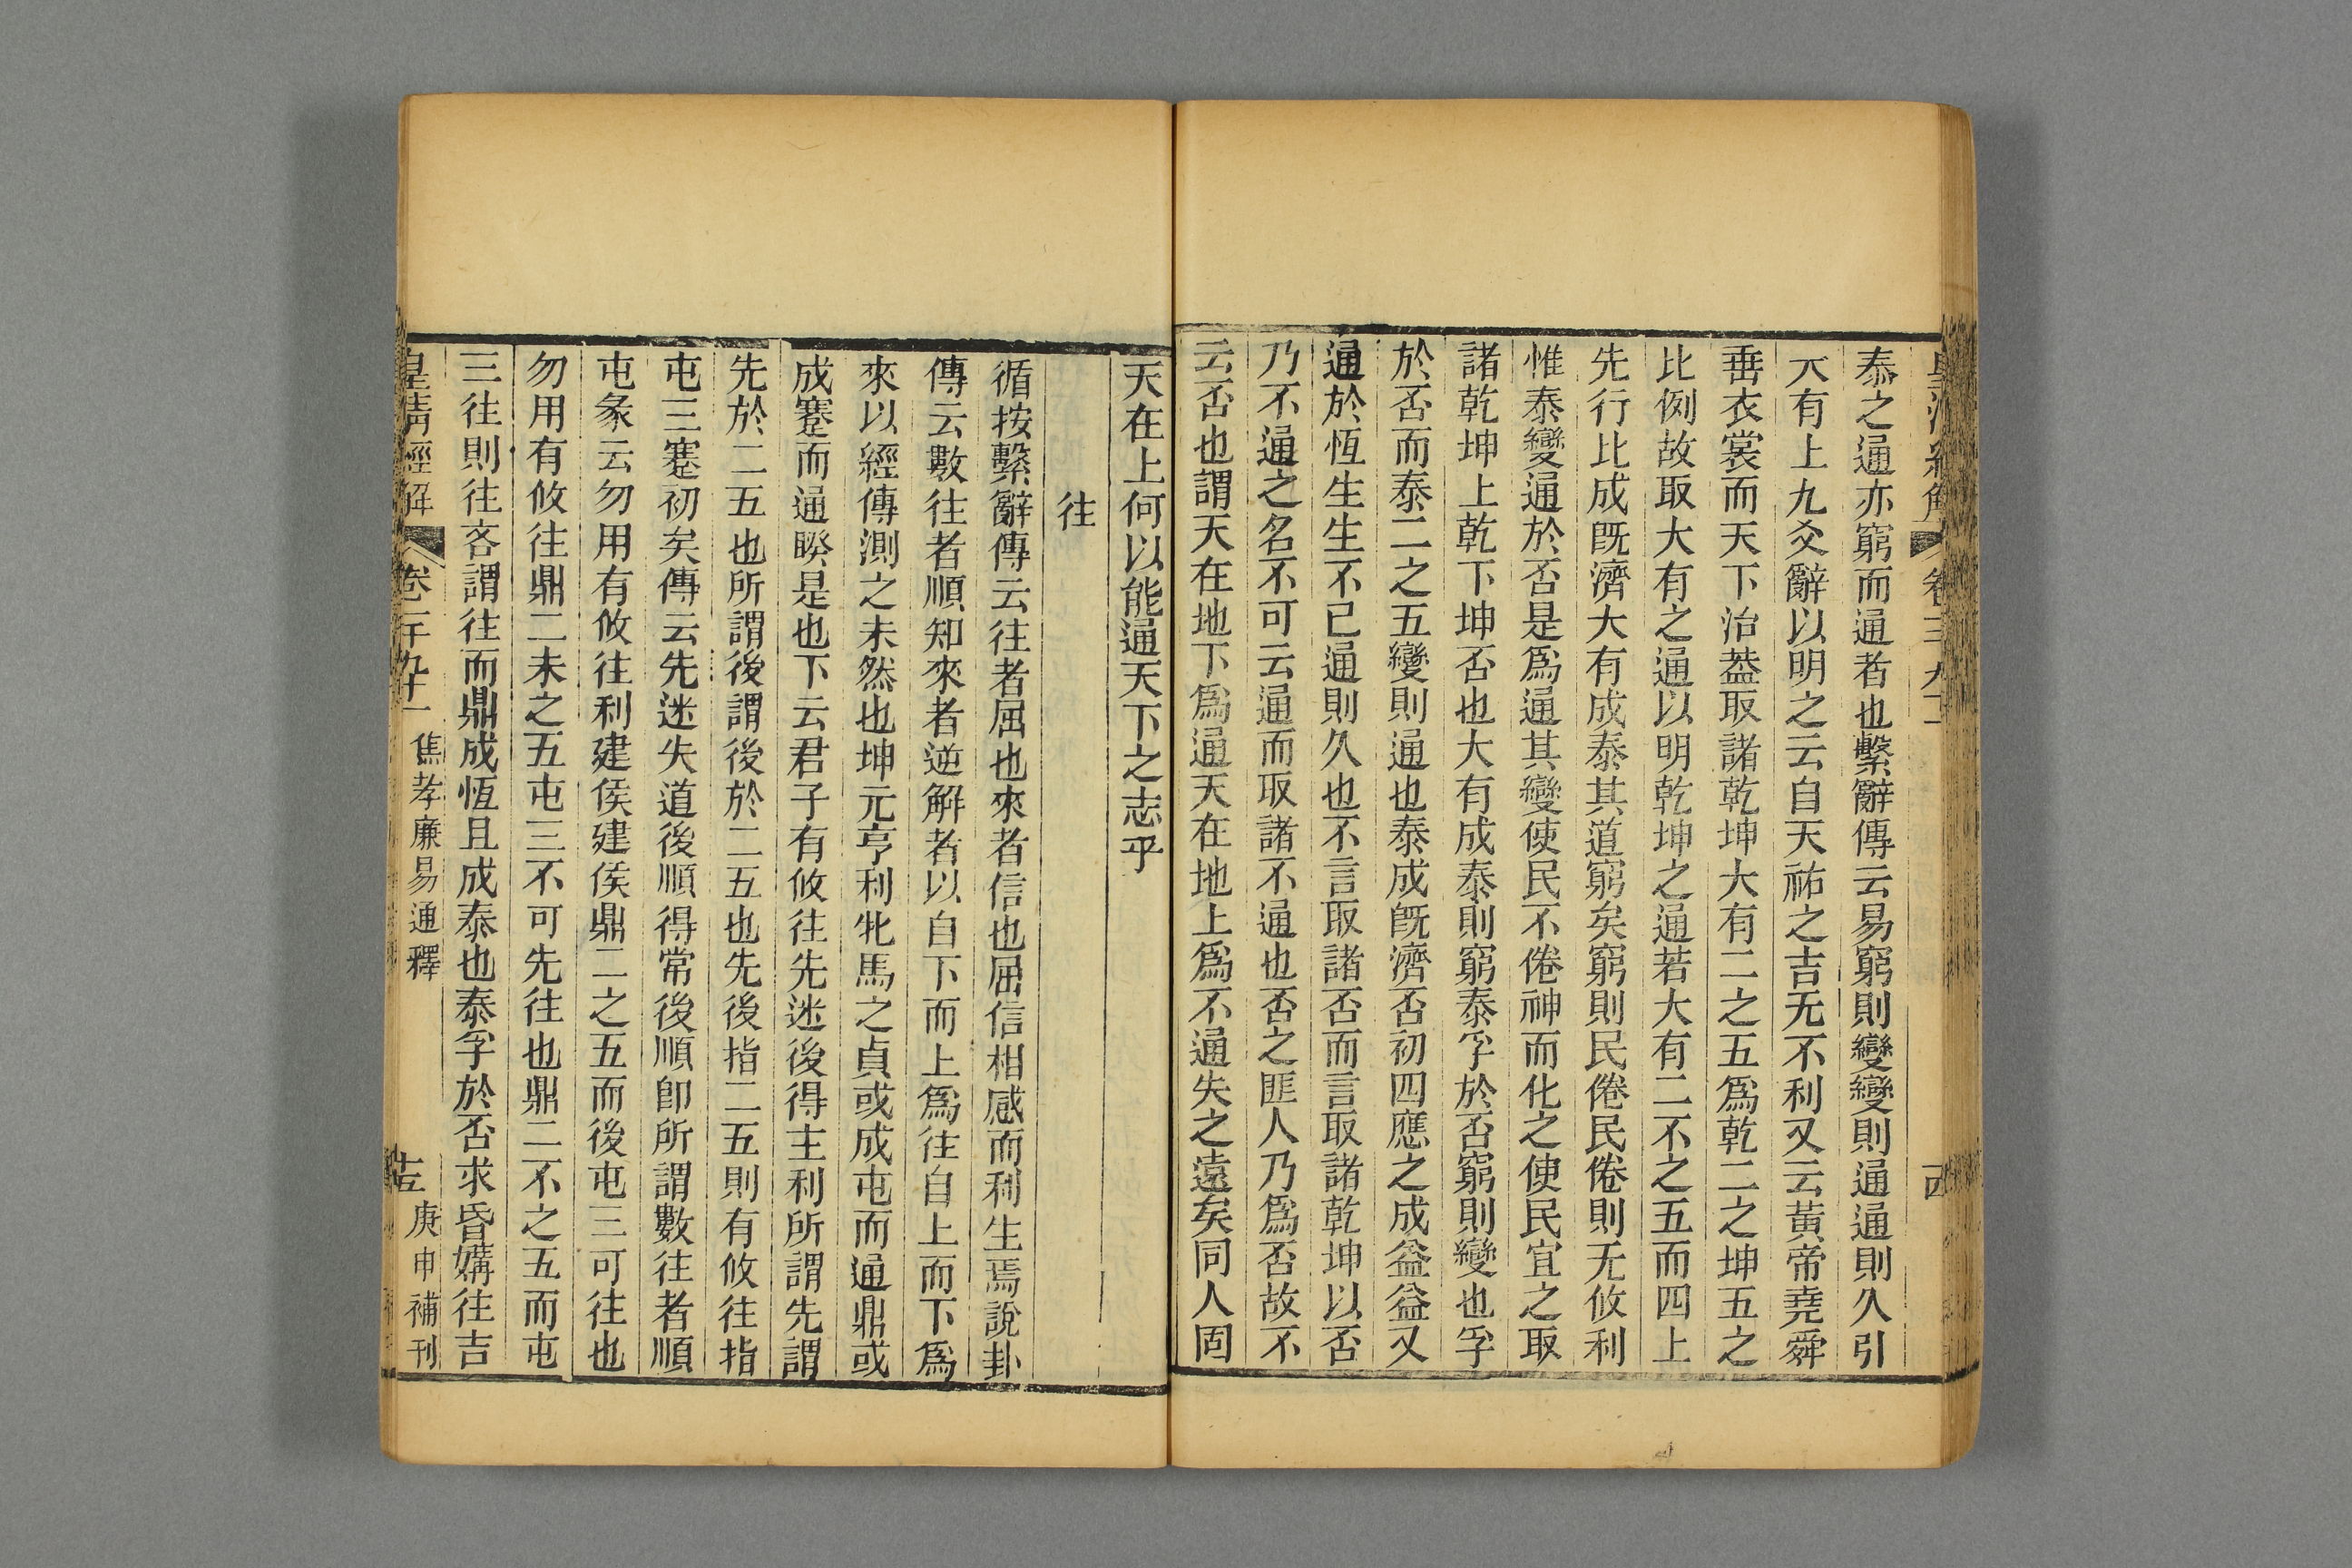 泰之通亦窮而通者也繫辭傳云易窮則變變則通通則久引
大有上九爻辭以明之云自天祐之吉无不利又云黃帝堯舜
垂衣裳而天下治葢取諸乾坤大有二之五爲乾二之坤五之
比例故取大有之通以明乾坤之通若大有二不之五而四上
先行比成旣濟大有成泰其道窮矣窮則民倦民倦則无攸利
惟泰變通於否是爲通其變使民不倦神而化之使民宜之取
諸乾坤上乾下坤否也大有成泰則窮泰孚於否窮則變也孚
於否而泰二之五變則通也泰成旣濟否初四應之成益益又
通於恆生生不已通則久也不言取諸否而言取諸乾坤以否
乃不通之名不可云通而取諸不通也否之匪人乃爲否故不
云否也謂天在地下爲通天在地上爲不通失之遠矣同人固
天在上何以能通天下之志乎
往
循按繫辭傳云往者屈也來者信也屈信相感而利生焉說卦
傳云數往者順知來者逆解者以自下而上爲往自上而下爲
來以經傳測之未然也坤元亨利牝馬之貞或成屯而通鼎或
成蹇而通睽是也下云君子有攸往先迷後得主利所謂先謂
先於二五也所謂後謂後於二五也先後指二五則有攸往指
屯三蹇初矣傳云先迷失道後順得常後順卽所謂數往者順
屯彖云勿用有攸往利建侯建侯鼎二之五而後屯三可往也
勿用有攸往鼎二未之五屯三不可先往也鼎二不之五而屯
三往則往吝謂往而鼎成恆且成泰也泰孚於否求昏媾往吉
皇淸經解 卷一千九十一 焦孝廉易通釋 十五 庚申補刊